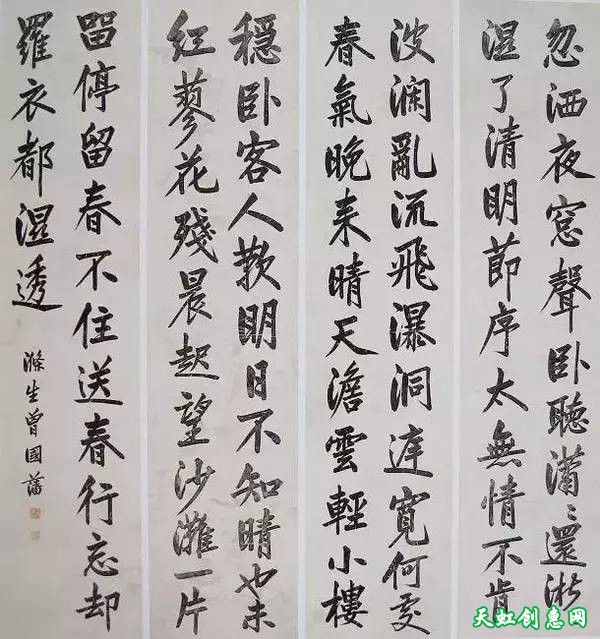 忽洒夜窓聲卧聽瀟〻還淅
濕了清明節序太無情不肯
波瀾亂流飛瀑洞達寬何處
春氣晚来晴天澹雲輕小樓
穩卧客人歎明日不知晴也未
紅蓼花殘晨起望沙灘一片
留停留春不住送春行忘却
羅衣都濕透
滌生曾國藩
天虹创惠网